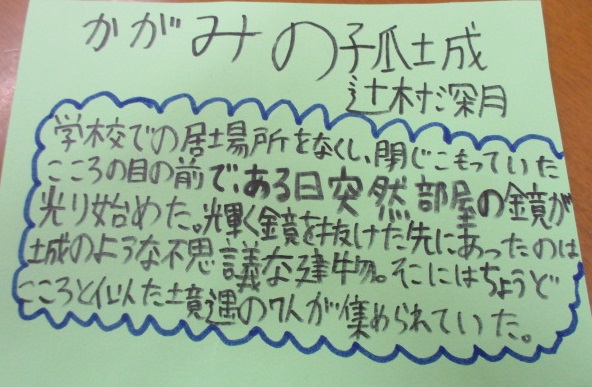 かがみの孤城
辻村深月
学校での居場所をなくし、閉じこもっていた
こころの目の前で、ある日突然部屋の鏡が
光り始めた。輝く鏡を抜けた先にあったのは
城のような不思議な建物。そこにはちょうど
こころと似た境遇の7人が集められていた。